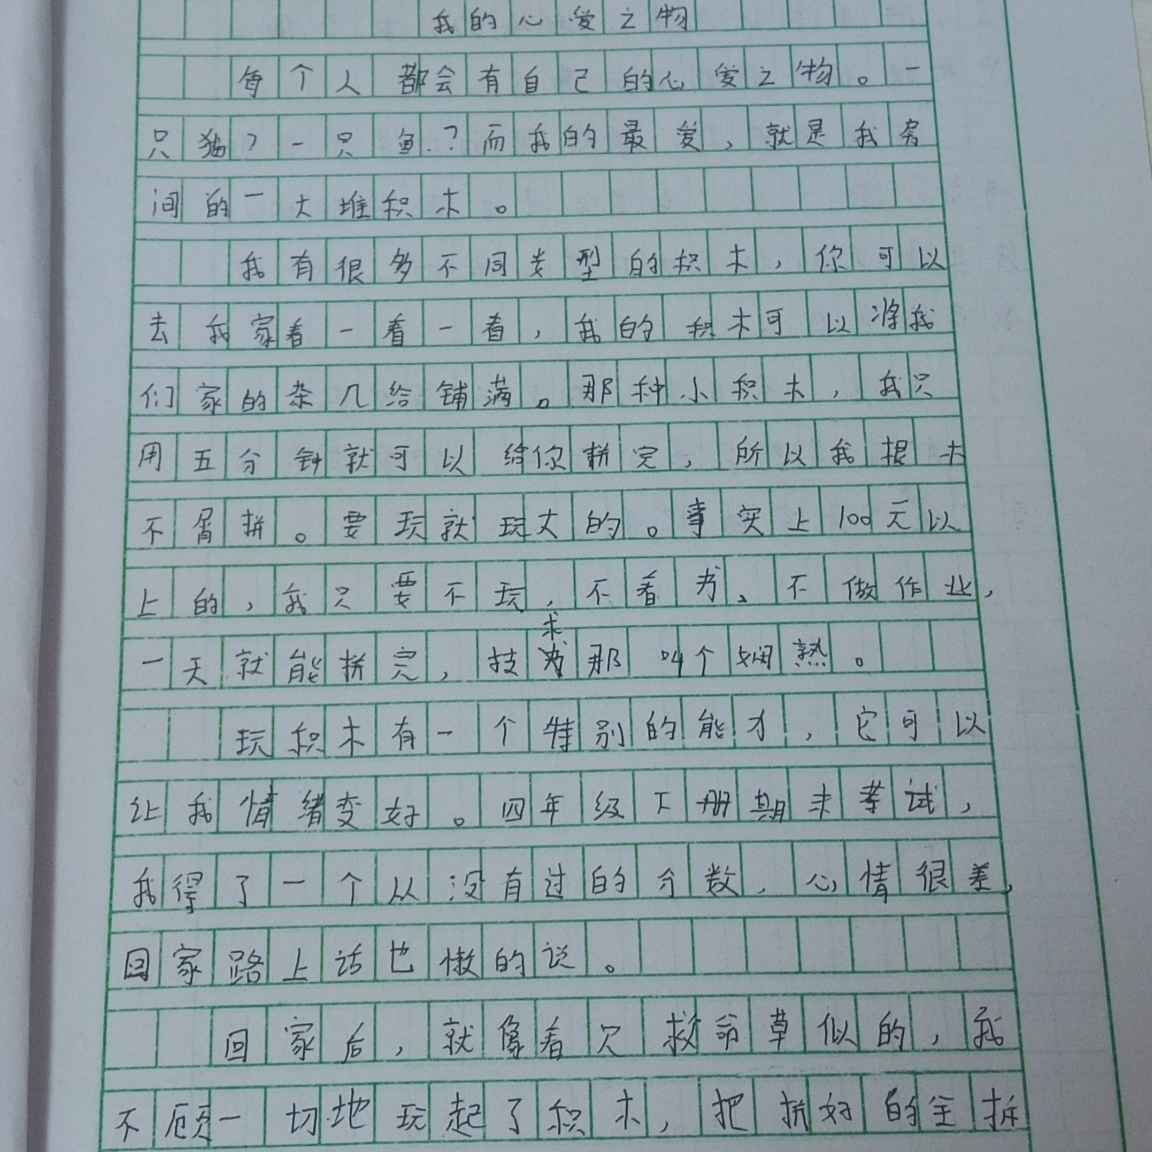 我的心爱之物
每个人都会有自己的心爱之物。一
只猫？一只鱼？而我的最爱，就是我房
间的一大堆积木。
我有很多不同类型的积木，你可以
去我家看一看一看，我的积木可以将我
们家的茶几给铺满。那种小积木，我只
用五分钟就可以给你拼完，所以我根本
不屑拼。要玩就玩大的。事实上100元以
上的，我只要不玩，不看书、不做作业，
一天就能拼完，技术那叫个娴熟。
玩积木有一个特别的能力，它可以
让我情绪变好。四年级下册期末考试，
我得了一个从没有过的分数，心情很差，
回家路上话也懒的说。
回家后，就像看见救命草似的，我
不顾一切地玩起了积木，把拼好的全拆